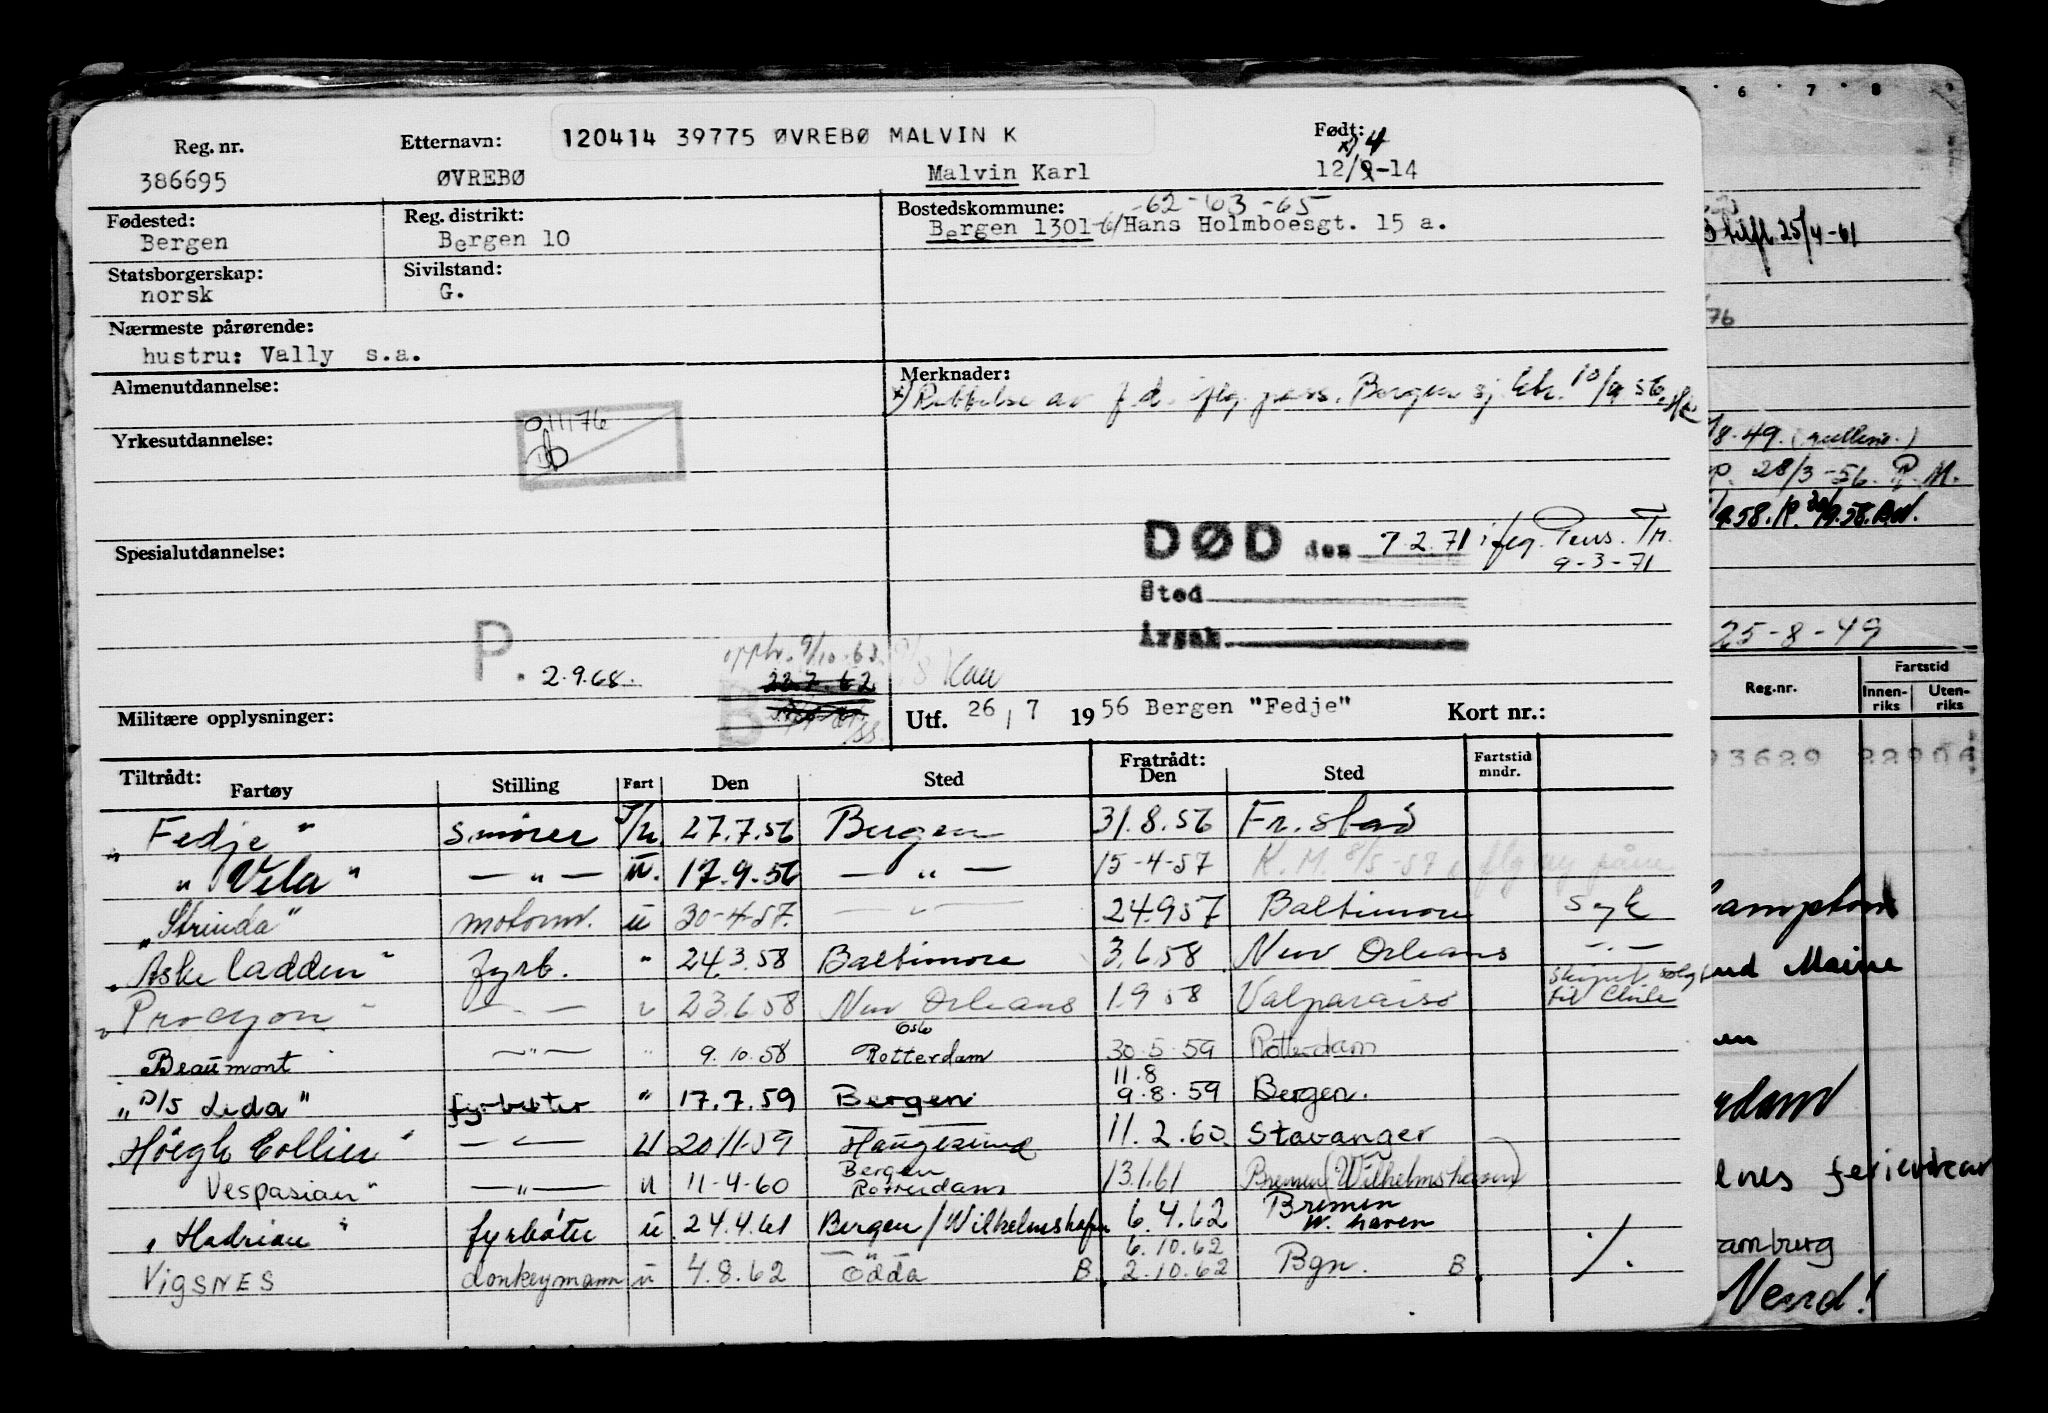 Reg. nr. Etternavn: 120414 39775 ØVREBØ MALVIN K Født:
x) 4
386695 ØVREBØ Malvin Karl 12/9-14
Fødested: Reg. distrikt: Bostedskommune: -62-63-65
Bergen Bergen 10 Bergen 1301-61 Hans Holmboesgt. 15 a.
Statsborgerskap: Sivilstand:
norsk G.
Nærmeste pårørende:
hustru: Vally s.a.
Almenutdannelse: Merknader:
x) Rettelse av f.d. iflg. pass. Bergen sj. ktr. 10/9 56
011176
Yrkesutdannelse:
DØD den 7.2.71 iflg. Pens. Tr.
9-3-71
Spesialutdannelse:
Sted
Årsak
P. 2.9.68. 9/10-63
22.7.62
B
Militære opplysninger: Utf. 26/7 1956 Bergen "Fedje" Kort nr.:
Tiltrådt: Fratrådt: Fartstid
Fartøy Stilling Fart Den Sted Den Sted mndr.
"Fedje" s.mører 27.7.56 Bergen 31.8.56 Fr.stad
"Vela" — " — u. 17.9.56 — " — 15-4-57 K.M. 8/5-57
"Strinda" motorm. u 30-4-57. — " — 24.9.57 Baltimore syk
"Askeladden" fyrb. " 24.3.58 Baltimore 3.6.58 New Orleans — . —
"Procyon" — " — " 23.6.58 New Orleans 1.9.58 Valparaiso skipet solgt til Chile
Oslo
Beaumont — " — " 9.10.58 Rotterdam 30.5.59 Rotterdam
11.8
"D/S Leda" fyrbøter " 17.7.59 Bergen 9.8.59 Bergen.
"Höegh Collier" — " — U 20.11.59 Haugesund 11.2.60 Stavanger
Bergen
Vespasian" — " — U 11-4-60 Rotterdam 13.1.61 Bremen (Wilhelmshaven)
"Hadrian" fyrbøter u 24.4.61 Bergen/Wilhelmshafen 6.4.62 Bremen W. haven
6.10.62
VIGSNES donkeymann u 4.8.62 Odda B. 2.10.62 Bgn. B. ./.
6 7 8
tilfl. 25/4-61
76
8-49.
28/3-56. P. M.
25-8-49
Reg.nr. Fartstid
Innenriks Utenriks
93629 22906
Maine
rdam
feriever
Vend!